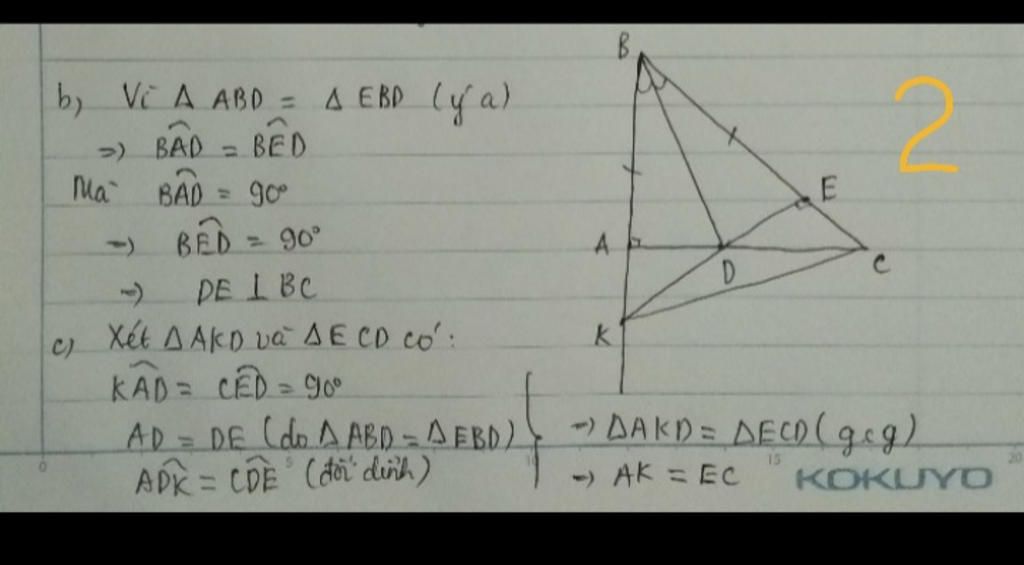 b) Vì Δ ABD = Δ EBD (ý a)
=> BÂD = BÊD
Mà BÂD = 90°
=> BÊD = 90°
=> DE ⊥ BC
c) Xét ΔAKD và ΔECD có:
KÂD = CÊD = 90°
AD = DE (do ΔABD = ΔEBD)
AD̂K = CD̂E (đối đỉnh)
=> ΔAKD = ΔECD (g.c.g)
=> AK = EC
B
E
A
D
C
K
2
0
5
10
15
20
KOKUYO